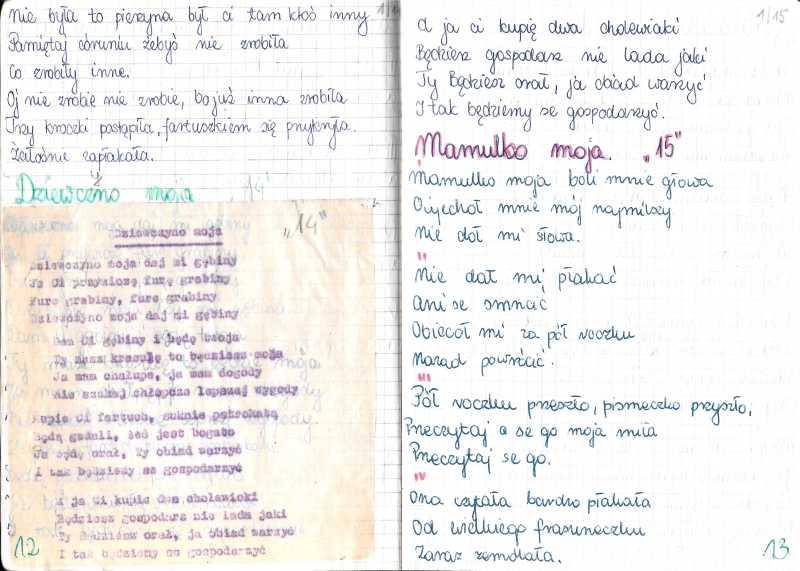 Nie była to pierzyna był ci tam ktoś inny.
1/14
Pamiętaj córuniu żebyś nie zrobiła
Co zrobiły inne.
Oj nie zrobie nie zrobie, bo już inna zrobiła
Trzy kroczki postąpiła, fartuszkiem się przykryła.
Żałośnie zapłakała.
Dziewczno moja „14"
Dziewczyno moja
„14"
Dziewczyno moja daj mi gębiny
Ja Ci przywiozę furę grabiny
Furę grabiny, furę grabiny
Dziewczyno moja daj mi gębiny
Dam Ci gębiny i będę twoja
Ty masz krasulę to będziesz moja
Ja mam chałupę, ja mam dogody
Nie szukaj chłopcze lepszej wygody
Kupię Ci fartuch, suknie pstrokatą
Będą gadali, żeś jest bogato
Ja będę orał, Ty obiad warzyć
I tak będziemy se gospodarzyć
A ja Ci kupię dwa cholewioki
Będziesz gospodarz nie lada jaki
Ty będziesz orał, ja obiad warzyć
I tak będziemy se gospodarzyć
12
1/15
A ja ci kupię dwa cholewiaki
Będziesz gospodarz nie lada jaki
Ty będziesz orał, ja obiad warzyć
I tak będziemy se gospodarzyć.
Mamulko moja. „15"
Mamulko moja boli mnie głowa
Oujechoł mnie mój najmilszy
Nie doł mi słowa.
II
Nie dał mi płakać
Ani se smucić
Obiecoł mi za pół roczku
Nazad powrócić.
III
Pół roczku przeszło, pismeczko przyszło,
Przeczytaj a se go moja miła
Przeczytaj se go.
IV
Ona czytała bardzo płakała
Od wielkiego frasuneczku
Zaraz zemdlała.
13